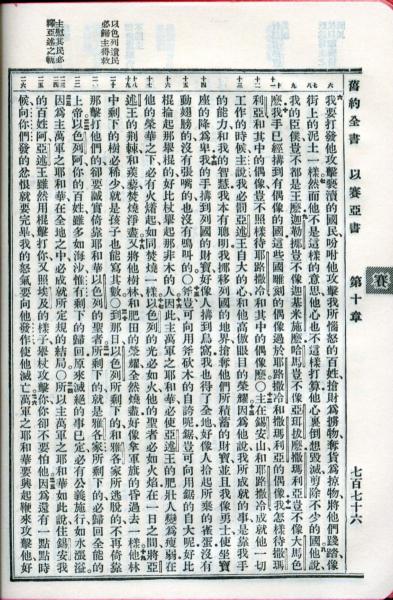 舊約全書 以賽亞書 第十章 七百七十六
賽
以色列遺民必歸主得救
主慰其民必釋亞述之軛
我要打發他攻擊褻瀆的國民吩咐他攻擊我所惱怒的百姓搶財爲擄物奪貨爲掠物將他們踐踏像
街上的泥土一樣然而他不是這樣的意思他心也不這樣打算他心裏倒想毀滅剪除不少的國他說
我的臣僕豈不都是王麼迦勒挪豈不像迦基米施麼哈馬豈不像亞珥拔麼撒瑪利亞豈不像大馬色
麼我手已經搆到有偶像的國這些國雕刻的偶像過於耶路撒冷和撒瑪利亞的偶像我怎樣待撒瑪
利亞和其中的偶像豈不照樣待耶路撒冷和其中的偶像麼○主在錫安山和耶路撒冷成就他一切
工作的時候主說我必罰亞述王自大的心和他高傲眼目的榮耀因爲他說我所成就的事是靠我手
的能力和我的智慧我本有聰明我挪移列國的地界搶奪他們所積蓄的財寶並且我像勇士使坐寶
座的降爲卑我的手搆到列國的財寶好像人搆到鳥窩我也得了全地好像人拾起所棄的雀蛋沒有
動翅膀的沒有張嘴的也沒有鳴叫的○斧豈可向用斧砍木的自誇呢鋸豈可向用鋸的自大呢好比
棍掄起那舉棍的好比杖舉起那非木的人因此主萬軍之耶和華必使亞述王的肥壯人變爲瘦弱在
他的榮華之下必有火着起如同焚燒一樣以色列的光必如火他的聖者必如火焰在一日之間將亞
述王的荊棘和蒺藜焚燒淨盡又將他樹林和肥田的榮耀全然燒盡好像拿軍旗的昏過去一樣他林
中剩下的樹必稀少就是孩子也能寫其數○到那日以色列所剩下的和雅各家所逃脫的不再倚靠
那擊打他們的卻要誠實倚靠耶和華以色列的聖者所剩下的就是雅各家所剩下的必歸回全能的
上帝以色列阿你的百姓雖多如海沙惟有剩下的歸回原來滅絕的事已定必有公義施行如水漲溢
因爲主萬軍之耶和華在全地之中必成就所定規的結局○所以主萬軍之耶和華如此說住錫安我
的百姓阿亞述王雖然用棍擊打你又照埃及的樣子舉杖攻擊你你卻不要怕他因爲還有一點點時
候向你們發的忿恨就要完畢我的怒氣要向他發作使他滅亡萬軍之耶和華要興起鞭來攻擊他好